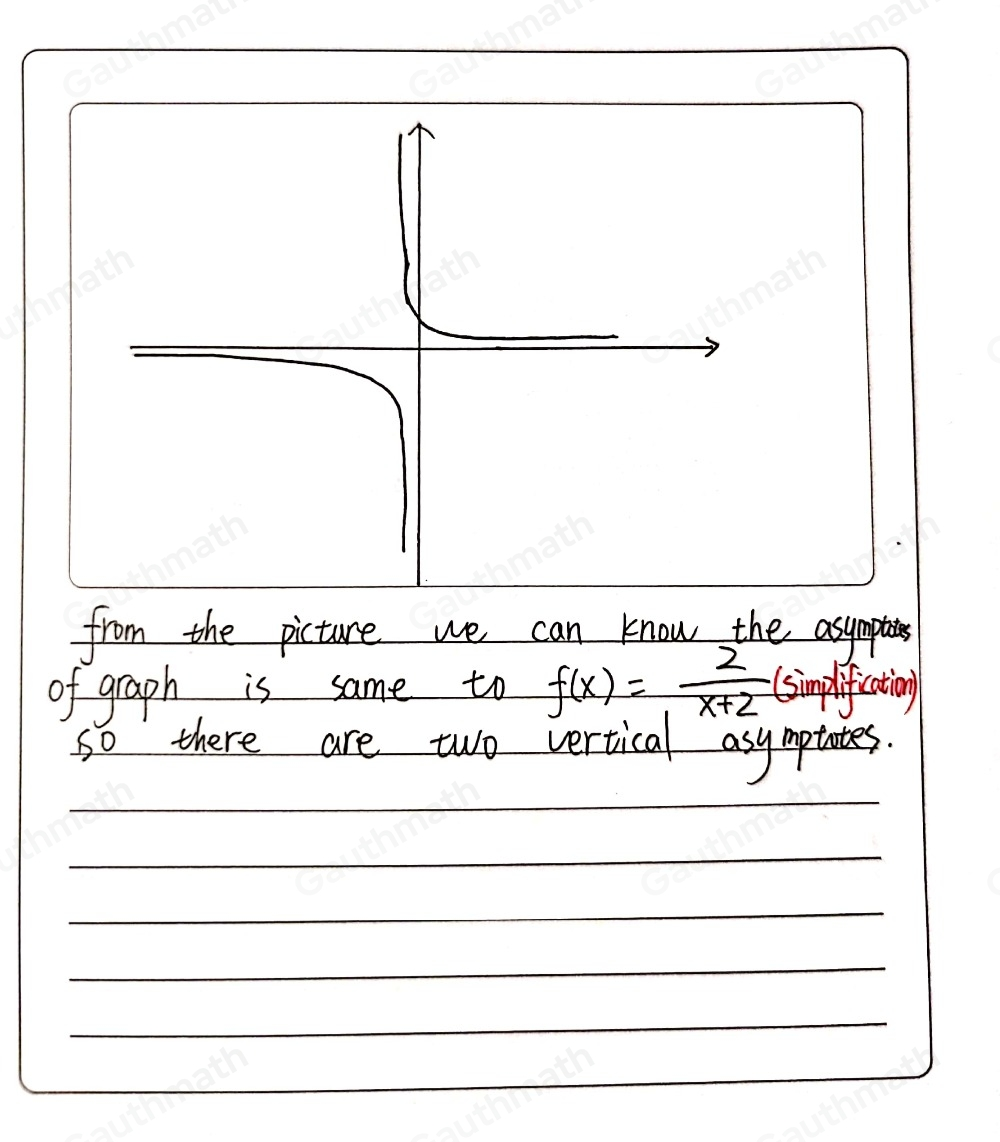 from the picture we can know the asymptotes
of graph is same to f(x) = 2/(x+2) (simplification)
so there are two vertical asymptotes.